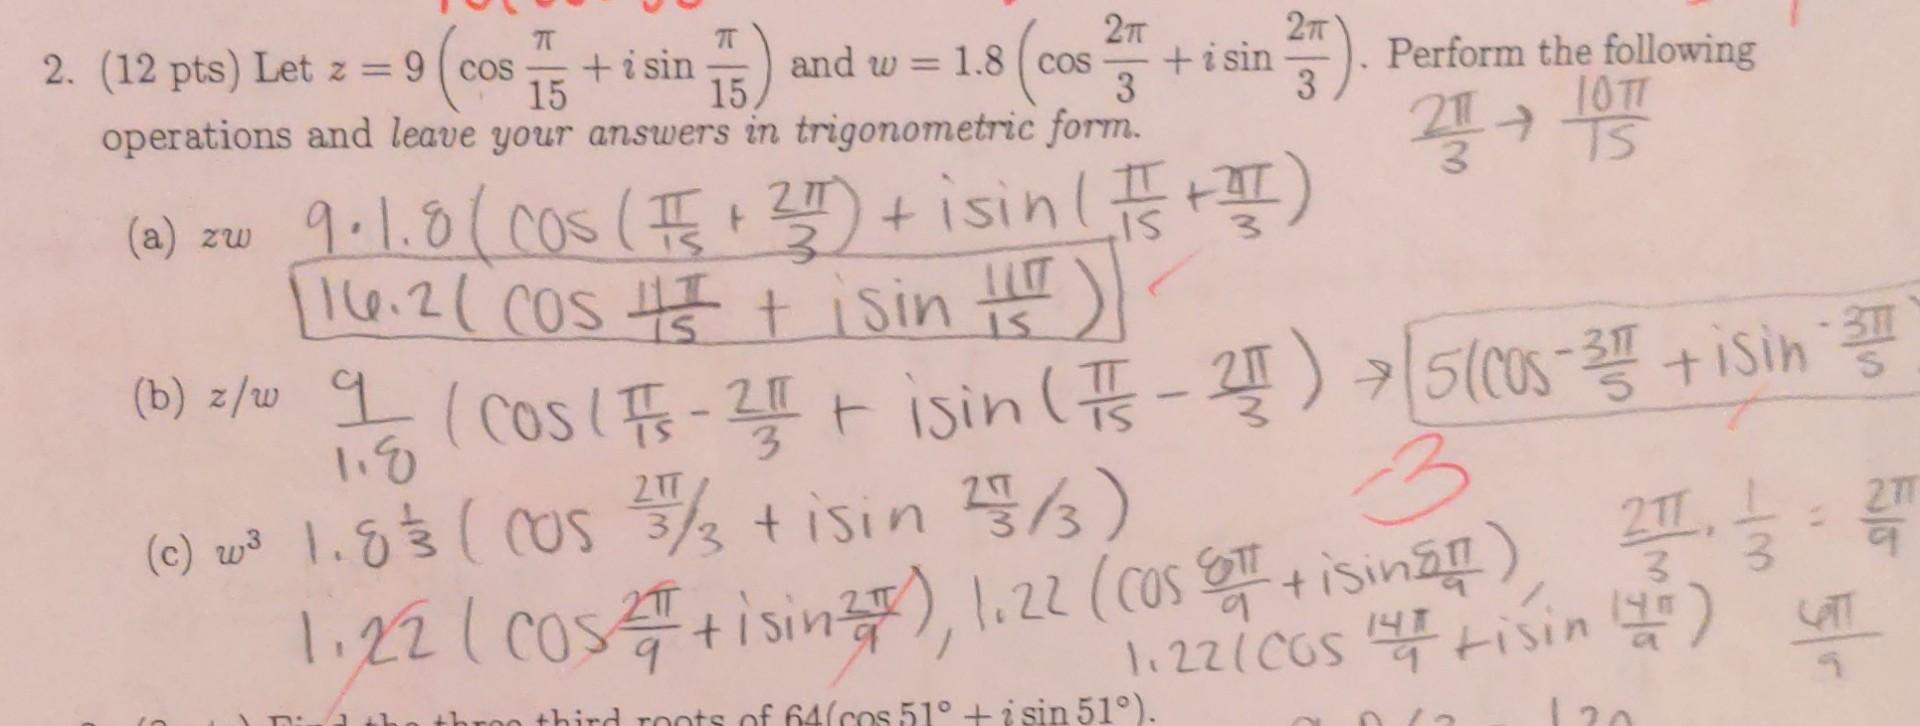 2. (12 pts) Let z = 9 (cos π/15 + i sin π/15) and w = 1.8 (cos 2π/3 + i sin 2π/3). Perform the following
operations and leave your answers in trigonometric form.
2π/3 → 10π/15
(a) zw 9·1.8(cos(π/15 + 2π/3) + isin(π/15 + 2π/3)
16.2(cos 11π/15 + isin 11π/15)
(b) z/w 9/1.8 (cos(π/15 - 2π/3 + isin(π/15 - 2π/3) → 5(cos -3π/5 + isin -3π/5
-3
(c) w³ 1.8^1/3 (cos 2π/3/3 + isin 2π/3/3)
2π/3 · 1/3 = 2π/9
1.22(cos 2π/9 + isin 2π/9), 1.22(cos 8π/9 + isin 8π/9),
1.22(cos 14π/9 + isin 14π/9)
6π/9
third roots of 64(cos 51° + i sin 51°).